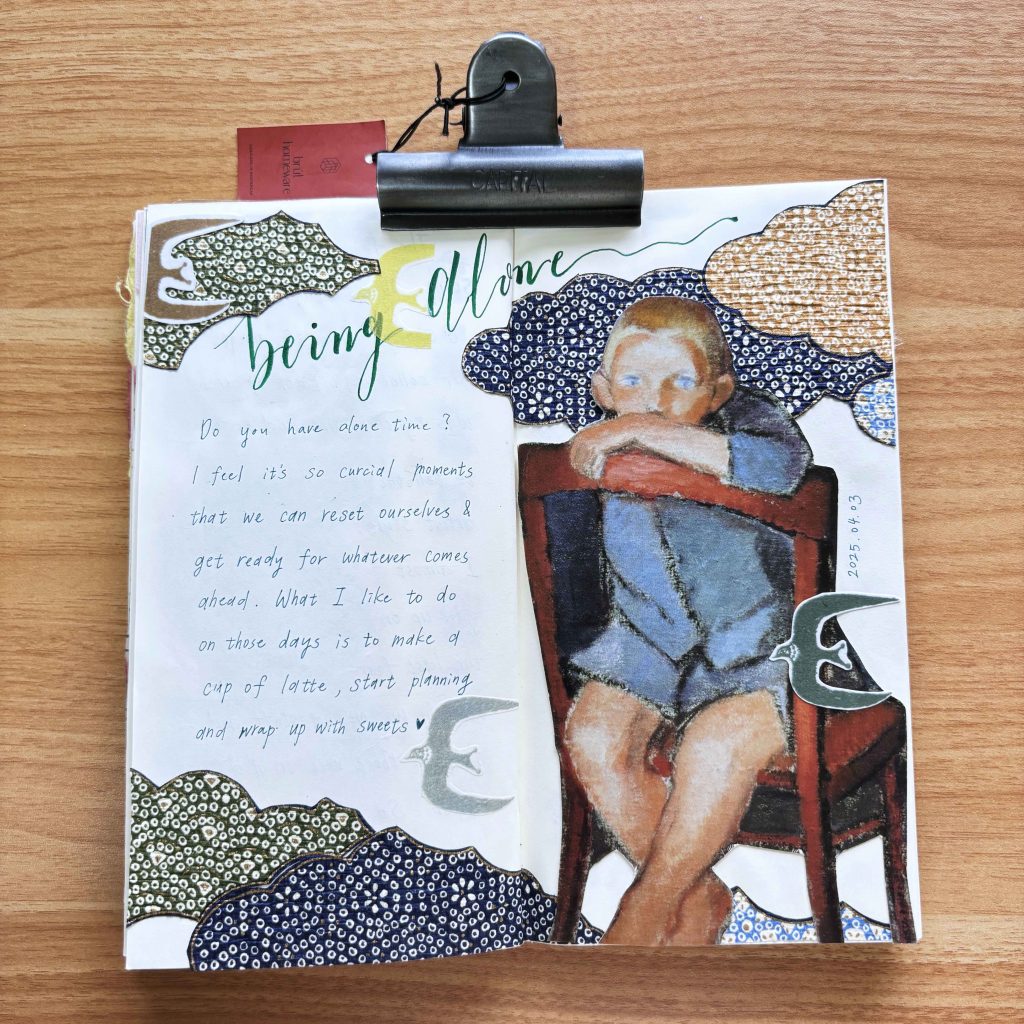 CAPITAL
brüt
homeware
being alone
Do you have alone time?
I feel it's so curcial moments
that we can reset ourselves &
get ready for whatever comes
ahead. What I like to do
on those days is to make a
cup of latte, start planning
and wrap up with sweets ♥
2025.04.03